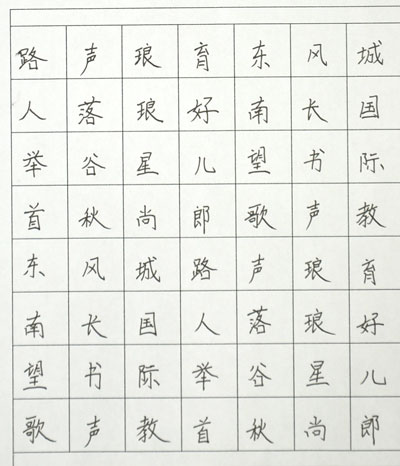 路声琅育东风城
人落琅好南长国
举谷星儿望书际
首秋尚郎歌声教
东风城路声琅育
南长国人落琅好
望书际举谷星儿
歌声教首秋尚郎